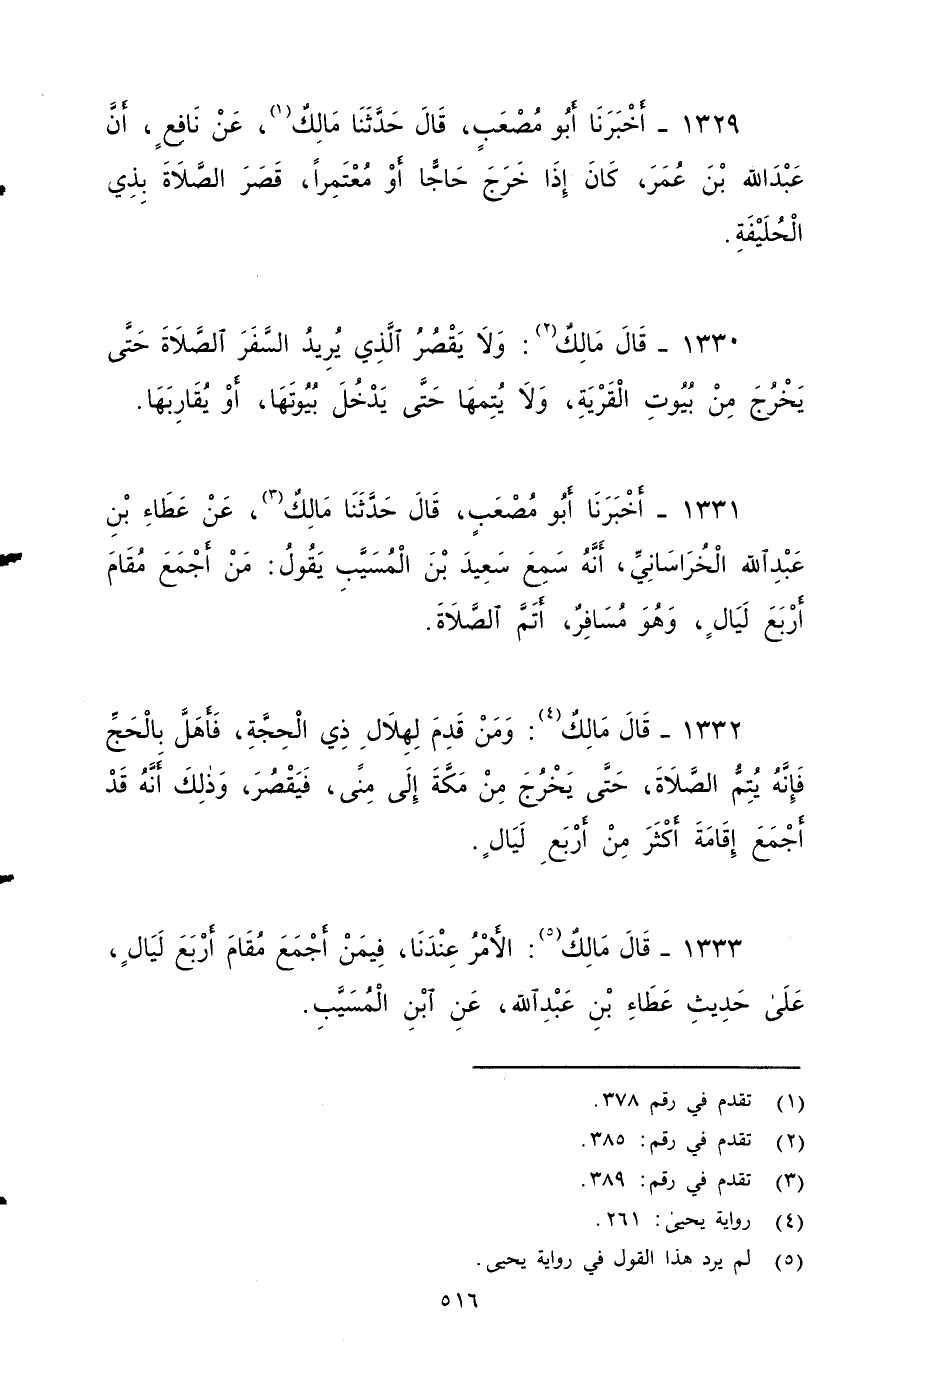 ١٣٢٩ ـ أَخْبَرَنَا أَبُو مُصْعَبٍ، قَالَ حَدَّثَنَا مَالِكٌ(١)، عَنْ نَافِعٍ، أَنَّ
عَبْدَالله بْنَ عُمَرَ، كَانَ إِذَا خَرَجَ حَاجًّا أَوْ مُعْتَمِراً، قَصَرَ الصَّلَاةَ بِذِي
الْحُلَيْفَةِ.
١٣٣٠ ـ قَالَ مَالِكٌ(٢): وَلَا يَقْصُرُ ٱلَّذِي يُرِيدُ السَّفَرَ ٱلصَّلَاةَ حَتَّى
يَخْرُجَ مِنْ بُيُوتِ الْقَرْيَةِ، وَلَا يُتِمهَا حَتَّى يَدْخُلَ بُيُوتَهَا، أَوْ يُقَارِبَهَا.
١٣٣١ ـ أَخْبَرَنَا أَبُو مُصْعَبٍ، قَالَ حَدَّثَنَا مَالِكٌ(٣)، عَنْ عَطَاءِ بْنِ
عَبْدِٱلله الْخُرَاسَانِيِّ، أَنَّهُ سَمِعَ سَعِيدَ بْنَ الْمُسَيَّبِ يَقُولُ: مَنْ أَجْمَعَ مُقَامَ
أَرْبَعَ لَيَالٍ، وَهُوَ مُسَافِرٌ، أَتَمَّ ٱلصَّلَاةَ.
١٣٣٢ ـ قَالَ مَالِكٌ(٤): وَمَنْ قَدِمَ لِهِلَالِ ذِي الْحِجَّةِ، فَأَهَلَّ بِالْحَجِّ
فَإِنَّهُ يُتِمُّ الصَّلَاةَ، حَتَّى يَخْرُجَ مِنْ مَكَّةَ إِلَى مِنًى، فَيَقْصُرَ، وَذٰلِكَ أَنَّهُ قَدْ
أَجْمَعَ إِقَامَةَ أَكْثَرَ مِنْ أَرْبَعِ لَيَالٍ.
١٣٣٣ ـ قَالَ مَالِكٌ(٥): الأَمْرُ عِنْدَنَا، فِيمَنْ أَجْمَعَ مُقَامَ أَرْبَعَ لَيَالٍ،
عَلَىٰ حَدِيثِ عَطَاءِ بْنِ عَبْدِٱلله، عَنِ ٱبْنِ الْمُسَيَّبِ.
(١) تقدم في رقم ٣٧٨.
(٢) تقدم في رقم: ٣٨٥.
(٣) تقدم في رقم: ٣٨٩.
(٤) رواية يحيىٰ: ٢٦١.
(٥) لم يرد هذا القول في رواية يحيى.
٥١٦